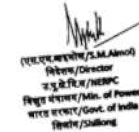 (एस.एम.आईमोल/S.M.Aimol)
निदेशक/Director
उ.पू.क्षे.वि.स/NERPC
विद्युत मंत्रालय/Min. of Power
भारत सरकार/Govt. of India
शिलांग/Shillong